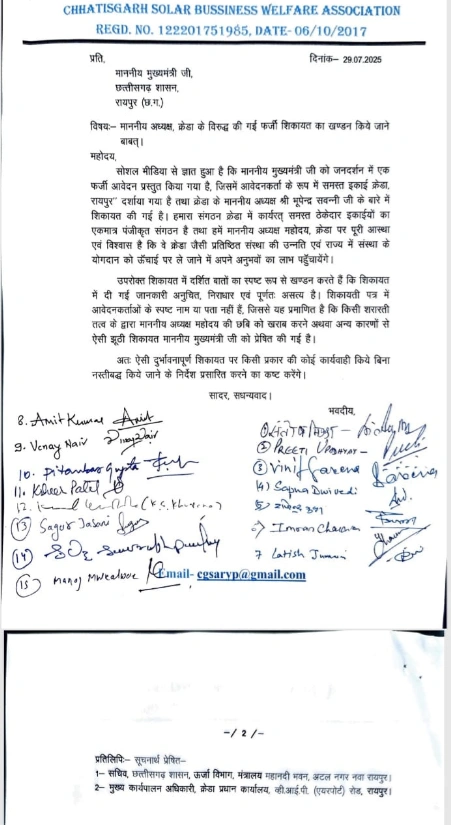 CHHATISGARH SOLAR BUSSINESS WELFARE ASSOCIATION
REGD. NO. 122201751985, DATE- 06/10/2017
प्रति,
दिनांक– 29.07.2025
माननीय मुख्यमंत्री जी,
छत्तीसगढ़ शासन,
रायपुर (छ.ग.)
विषयः– माननीय अध्यक्ष, क्रेडा के विरुद्ध की गई फर्जी शिकायत का खण्डन किये जाने
बाबत्।
महोदय,
सोशल मीडिया से ज्ञात हुआ है कि माननीय मुख्यमंत्री जी को जनदर्शन में एक
फर्जी आवेदन प्रस्तुत किया गया है, जिसमें आवेदनकर्ता के रूप में समस्त इकाई क्रेडा,
रायपुर" दर्शाया गया है तथा क्रेडा के माननीय अध्यक्ष श्री भूपेन्द्र सवन्नी जी के बारे में
शिकायत की गई है। हमारा संगठन क्रेडा में कार्यरत् समस्त ठेकेदार इकाईयों का
एकमात्र पंजीकृत संगठन है तथा हमें माननीय अध्यक्ष महोदय, क्रेडा पर पूरी आस्था
एवं विश्वास है कि वे क्रेडा जैसी प्रतिष्ठित संस्था की उन्नति एवं राज्य में संस्था के
योगदान को ऊँचाई पर ले जाने में अपने अनुभवों का लाभ पहुँचायेंगे।
उपरोक्त शिकायत में दर्शित बातों का स्पष्ट रूप से खण्डन करते हैं कि शिकायत
में दी गई जानकारी अनुचित, निराधार एवं पूर्णतः असत्य है। शिकायती पत्र में
आवेदनकर्ताओं के स्पष्ट नाम या पता नहीं हैं, जिससे यह प्रमाणित है कि किसी शरारती
तत्व के द्वारा माननीय अध्यक्ष महोदय की छबि को खराब करने अथवा अन्य कारणों से
ऐसी झूठी शिकायत माननीय मुख्यमंत्री जी को प्रेषित की गई है।
अतः ऐसी दुर्भावनापूर्ण शिकायत पर किसी प्रकार की कोई कार्यवाही किये बिना
नस्तीबद्ध किये जाने के निर्देश प्रसारित करने का कष्ट करेंगे।
सादर, सधन्यवाद।
भवदीय,
② PREETI UPADHYAY –
③ Vinit
④ Sapna Dwivedi
Imran
7 Latish
8. Amit Kumar Amit
9. Venay Nair
10. Pitambar Gupta
11. Kheer Patel
12.
⑬ Sagar Jasani
⑭
⑮ Manoj
Email- cgsaryp@gmail.com
-/ 2 /-
प्रतिलिपिः– सूचनार्थ प्रेषित–
1– सचिव, छत्तीसगढ़ शासन, ऊर्जा विभाग, मंत्रालय महानदी भवन, अटल नगर नवा रायपुर।
2– मुख्य कार्यपालन अधिकारी, क्रेडा प्रधान कार्यालय, व्ही.आई.पी. (एयरपोर्ट) रोड, रायपुर।